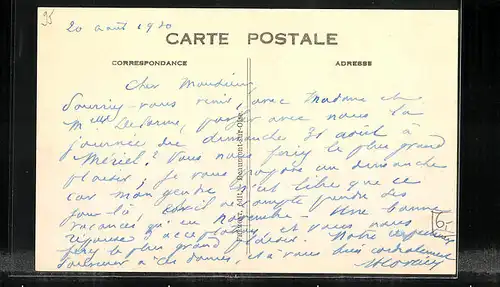 20 août 1930
CARTE POSTALE
CORRESPONDANCE
ADRESSE
Cher Monsieur
Pourriez-vous venir, avec Madame et
Melle Delorme, passer avec nous la
journée du dimanche 31 août à
Mériel? Vous nous feriez le plus grand
plaisir; je vous un dimanche
car mon gendre n'est libre que ce
jour-là, et il ne compte prendre des
vacances qu'en novembre - Une bonne
réponse acceptant et vous nous
ferez le plus grand plaisir. Notre
souvenir à ces dames, et à vous bien cordialement
édit., Beaumont-sur-Oise
6,-